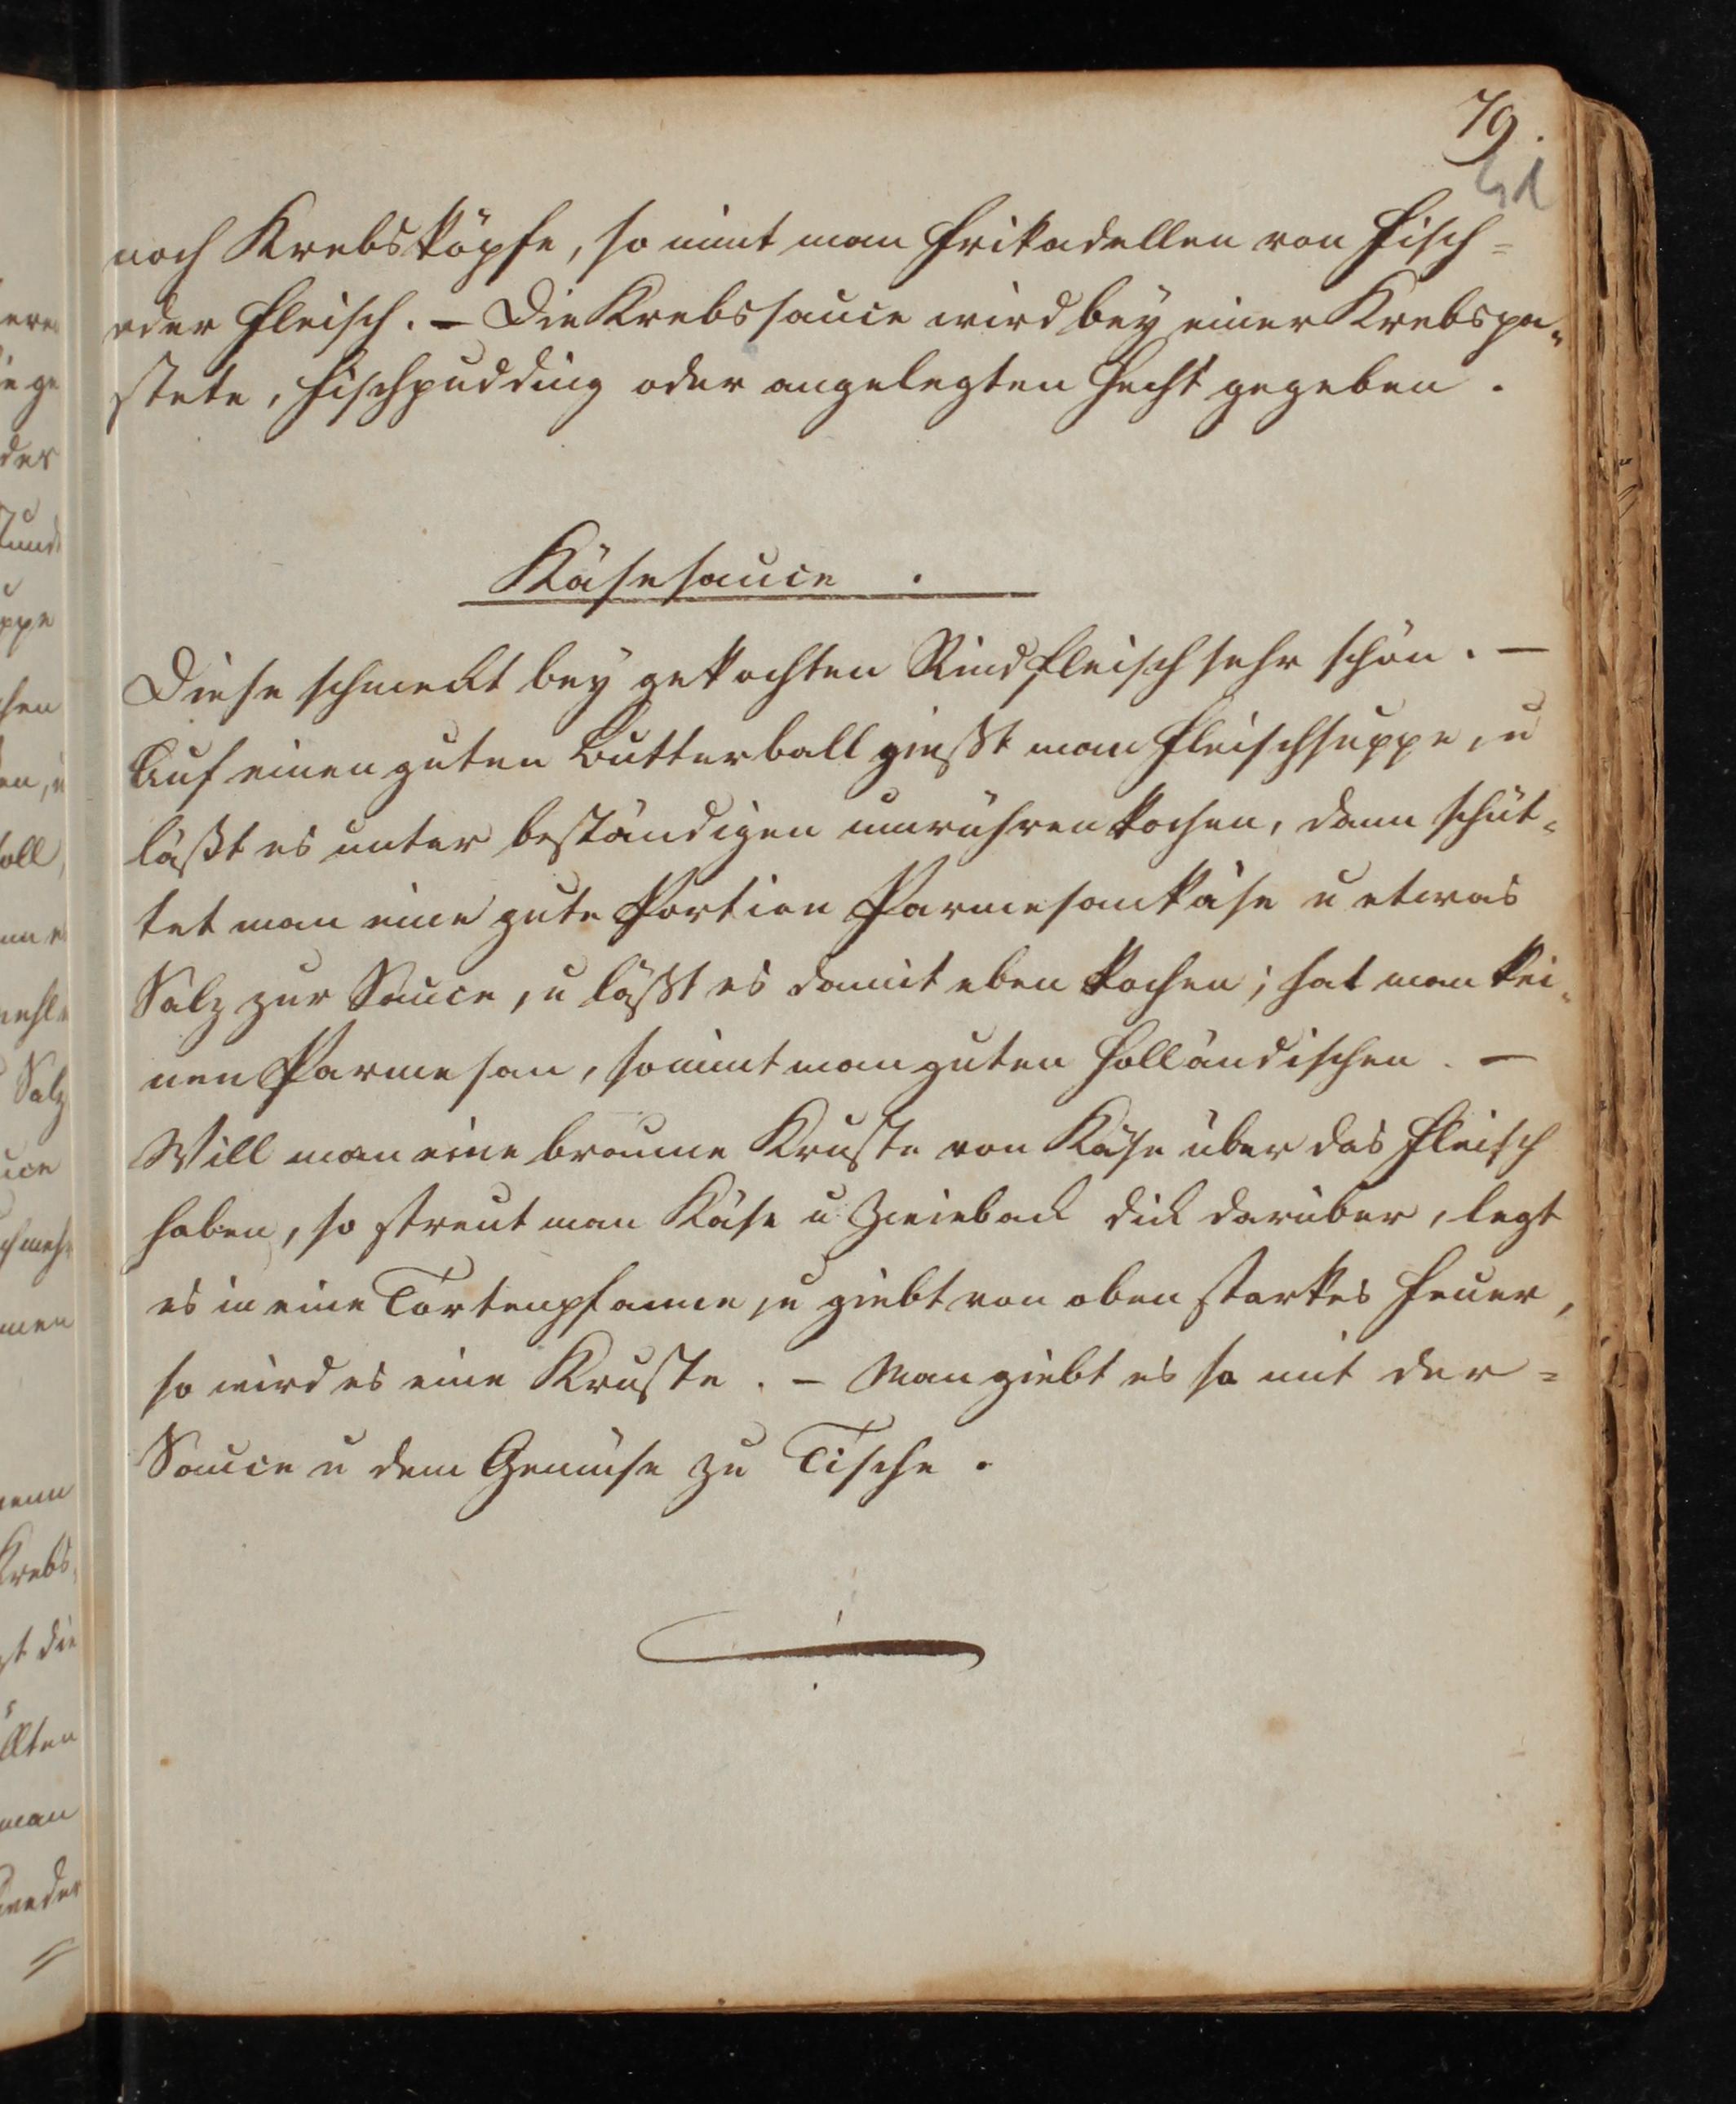 79.
41
noch Krebsköpfe, so nimt man Frikadellen von Fisch=
oder Fleisch. – Die Krebssauce wird bey einer Krebspa=
stete, Fischpudding oder angelegten Hecht gegeben.
Käsesauce.
Diese schmeckt bey gekochten Rindfleisch sehr schön. –
Auf einen guten Butterball gießt man Fleischsuppe, u
läßt es unter beständigen umrühren kochen, dann schüt=
tet man eine gute Portion Parmesankäse u etwas
Salz zur Sauce, u läßt es damit eben kochen; hat man kei=
nen Parmesan, so nimt man guten Holländischen. –
Will man eine braune Kruste von Käse über das Fleisch
haben, so streut man Käse u Zwieback dick darüber, legt
es in eine Tortenpfanne, u giebt von oben starkes Feuer,
so wird es eine Kruste. – Man giebt es so mit der=
Sauce u dem Gemüse zu Tische.